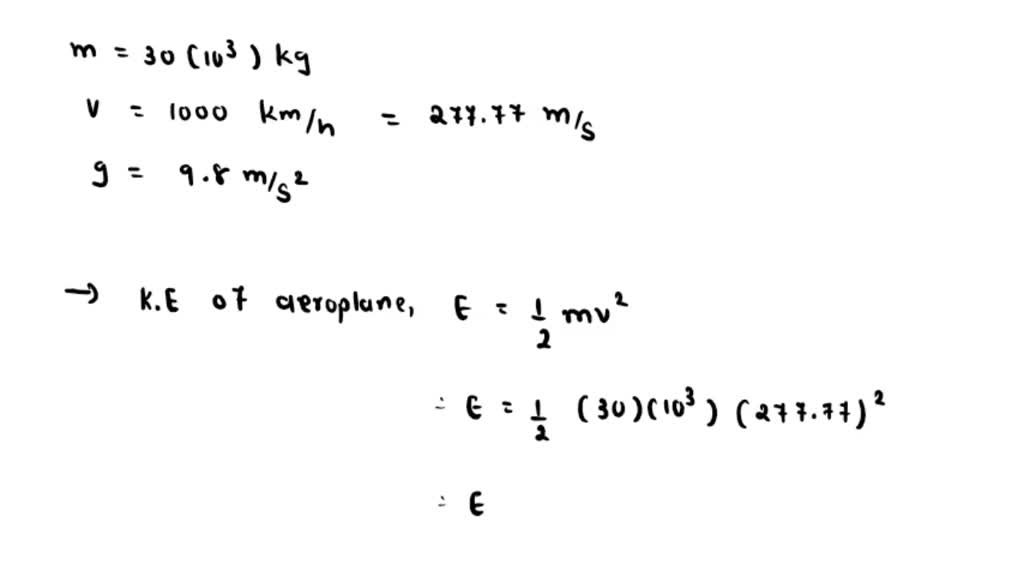 m = 30 (10³) kg
v = 1000 km/h = 277.77 m/s
g = 9.8 m/s²
→ K.E of aeroplane, E = 1/2 mv²
= E = 1/2 (30)(10³) (277.77)²
= E